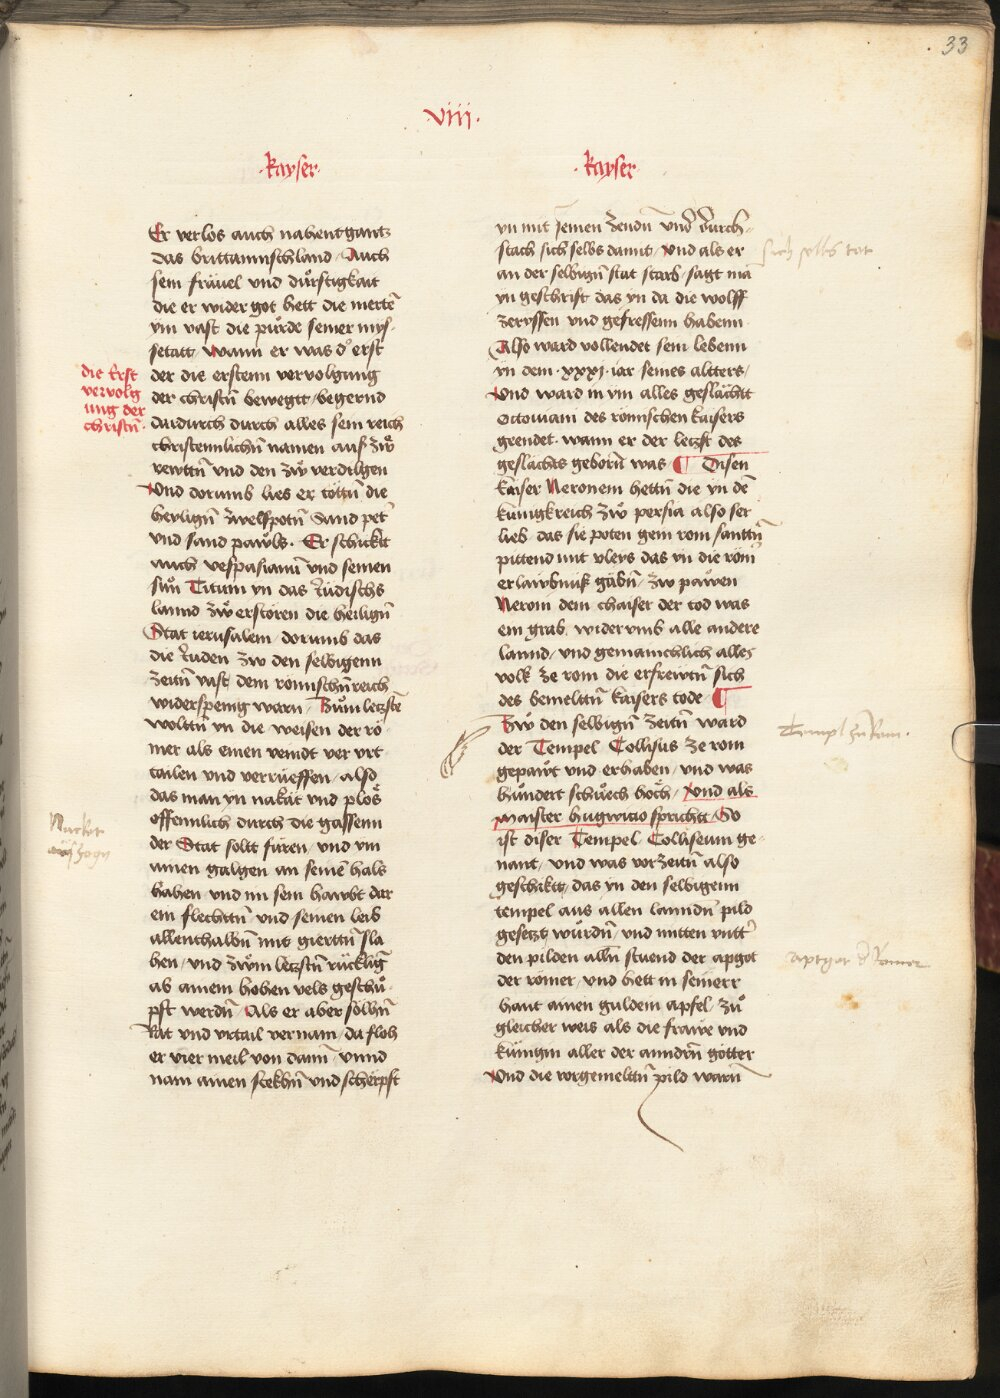 33
viii.
·kayser·
Er verlos auch nahent gantz
das brittannischland / Auch
sein fräuel vnd dürstigkait
die er wider got hett die mertē
ym vast die pürde seiner mys-
setatt / wann er was d' erst
der die erstenn vervolgung
der christn̄ bewegtt / begernd
dardurch durch alles sein reich
christennlichn̄ namen aus zẘ
rewttn̄ vnd den zẘ verdilgen
Vnd dorumb lies er töttn̄ die
heylign̄ zwelfpotn̄ Sand pet'
vnd sand pawls · Er schicktt
auch vespasianū vnd seinen
sůn Titum yn das Jüdischs
lannd zẘ erstören die heilign̄
Stat ierusalem dorumb das
die Juden zw den selbigenn
zeitn̄ vast dem romischn̄ reich
widerspenig warn / Zum letzstē
wolttn̄ yn die weisen der rö
mer als einen veindt ver vrt
tailen vnd verrüeffen / also
das man yn nakāt vnd plos
offennlich durch die gassenn
der Stat soltt füren / vnd ym
ainen galgen an seinē hals
hahen / vnd im sein hawbt dar
ein flechttn̄ vnd seinen leib
allenthalbn̄ mit gierttn̄ sla
hen / vnd zẘm letzstn̄ rücklig
ab ainem hohen vels geschü-
pft werdn̄ / Als er aber sölhn̄
Rat vnd vrtail vernam / da floh
er vier meil von dann̄ / vnnd
nam ainen steckhn̄ vnd scherpft
die Erst
vervolg
ung der
christn̄·
Nacket
auszogn
·kayser
yn mit seinen zendn̄ vnd durch-
stach sich selbs damit / Vnd als er
an der selbign̄ stat starb / sagt mā
yn geschrift das yn da die wolff
zeryssen vnd gefressenn habenn
Also ward vollendet sein lebenn
in dem · xxxj · iar seines altters /
Vnd ward in ym alles geslächtt
Octoviani des römischen kaisers
geendet · wann er der letzst des
geslächts geborn̄ was ¶ Disen
kaiser Neronem hettn̄ die yn dē
künigkreich zẘ persia also ser
lieb das sie poten gein rom santtn̄
pittend mit vleys das yn die röm'
erlawbnuß gäbn̄ / zw pawen
Neroni dem chaiser der tod was
ein grab / widervmb alle andere
lannd / vnd gemainchlich alles
volk ze rom die erfreẘtn̄ sich
des bemelttn̄ kaisers tode ¶
Zẘ den selbign̄ zeitn̄ ward
der Tempel Collisus ze rom
gepawt vnd erhaben / vnd was
hundert schuech höch / Vnd als
maister hugwitio sprichtt / So
ist diser Tempel Colliseum ge-
nant / vnd was vorzeitn̄ also
geschiktt / das yn den selbigenn
tempel aus allen lanndn̄ pild
gesetzt würdn̄ / vnd mitten vntt'
den pilden alln̄ stuend der apgot
der römer / vnd hett in seinerr
hant ainen guldein apfel / zů
gleicher weis als die frawe vnd
künigin aller der anndrn̄ götter
Vnd die vorgemelttn̄ pild warn̄
sich selbs tot
Templ zu Rom.
aptgot d' Romer